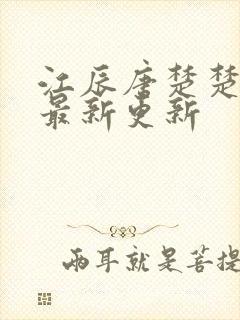 江辰唐楚楚
最新更新
两耳就是菩提